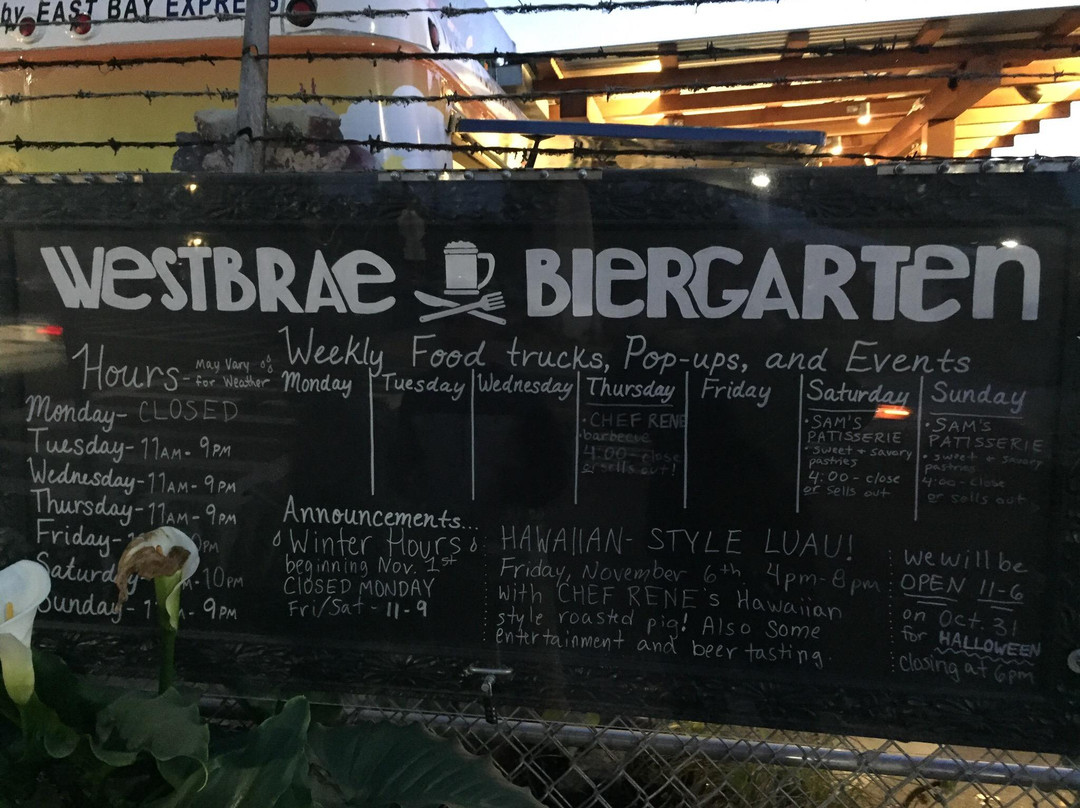 by EAST BAY EXPRESS
WESTBRAE BIERGARTEN
Weekly Food trucks, Pop-ups, and Events
Hours-
May Vary
for Weather
Monday- CLOSED
Tuesday- 11AM- 9PM
Wednesday- 11AM- 9PM
Thursday- 11AM- 9PM
Friday-
Saturday 10PM
Sunday- 9PM
Monday
Tuesday
Wednesday
Thursday
• CHEF RENE
barbecue
4:00- close
or sells out!
Friday
Saturday
• SAM'S
PATISSERIE
• sweet + savory
pastries
4:00 - close
or sells out
Sunday
• SAM'S
PATISSERIE
• sweet + savory
pastries
4:00 - close
or sells out
Announcements...
Winter Hours
beginning Nov. 1st
CLOSED MONDAY
Fri/Sat - 11-9
HAWAIIAN- STYLE LUAU!
Friday, November 6th 4pm-8pm
with CHEF RENE's Hawaiian
style roasted pig! Also some
entertainment and beer tasting.
we will be
OPEN 11-6
on Oct. 31
for HALLOWEEN
closing at 6pm